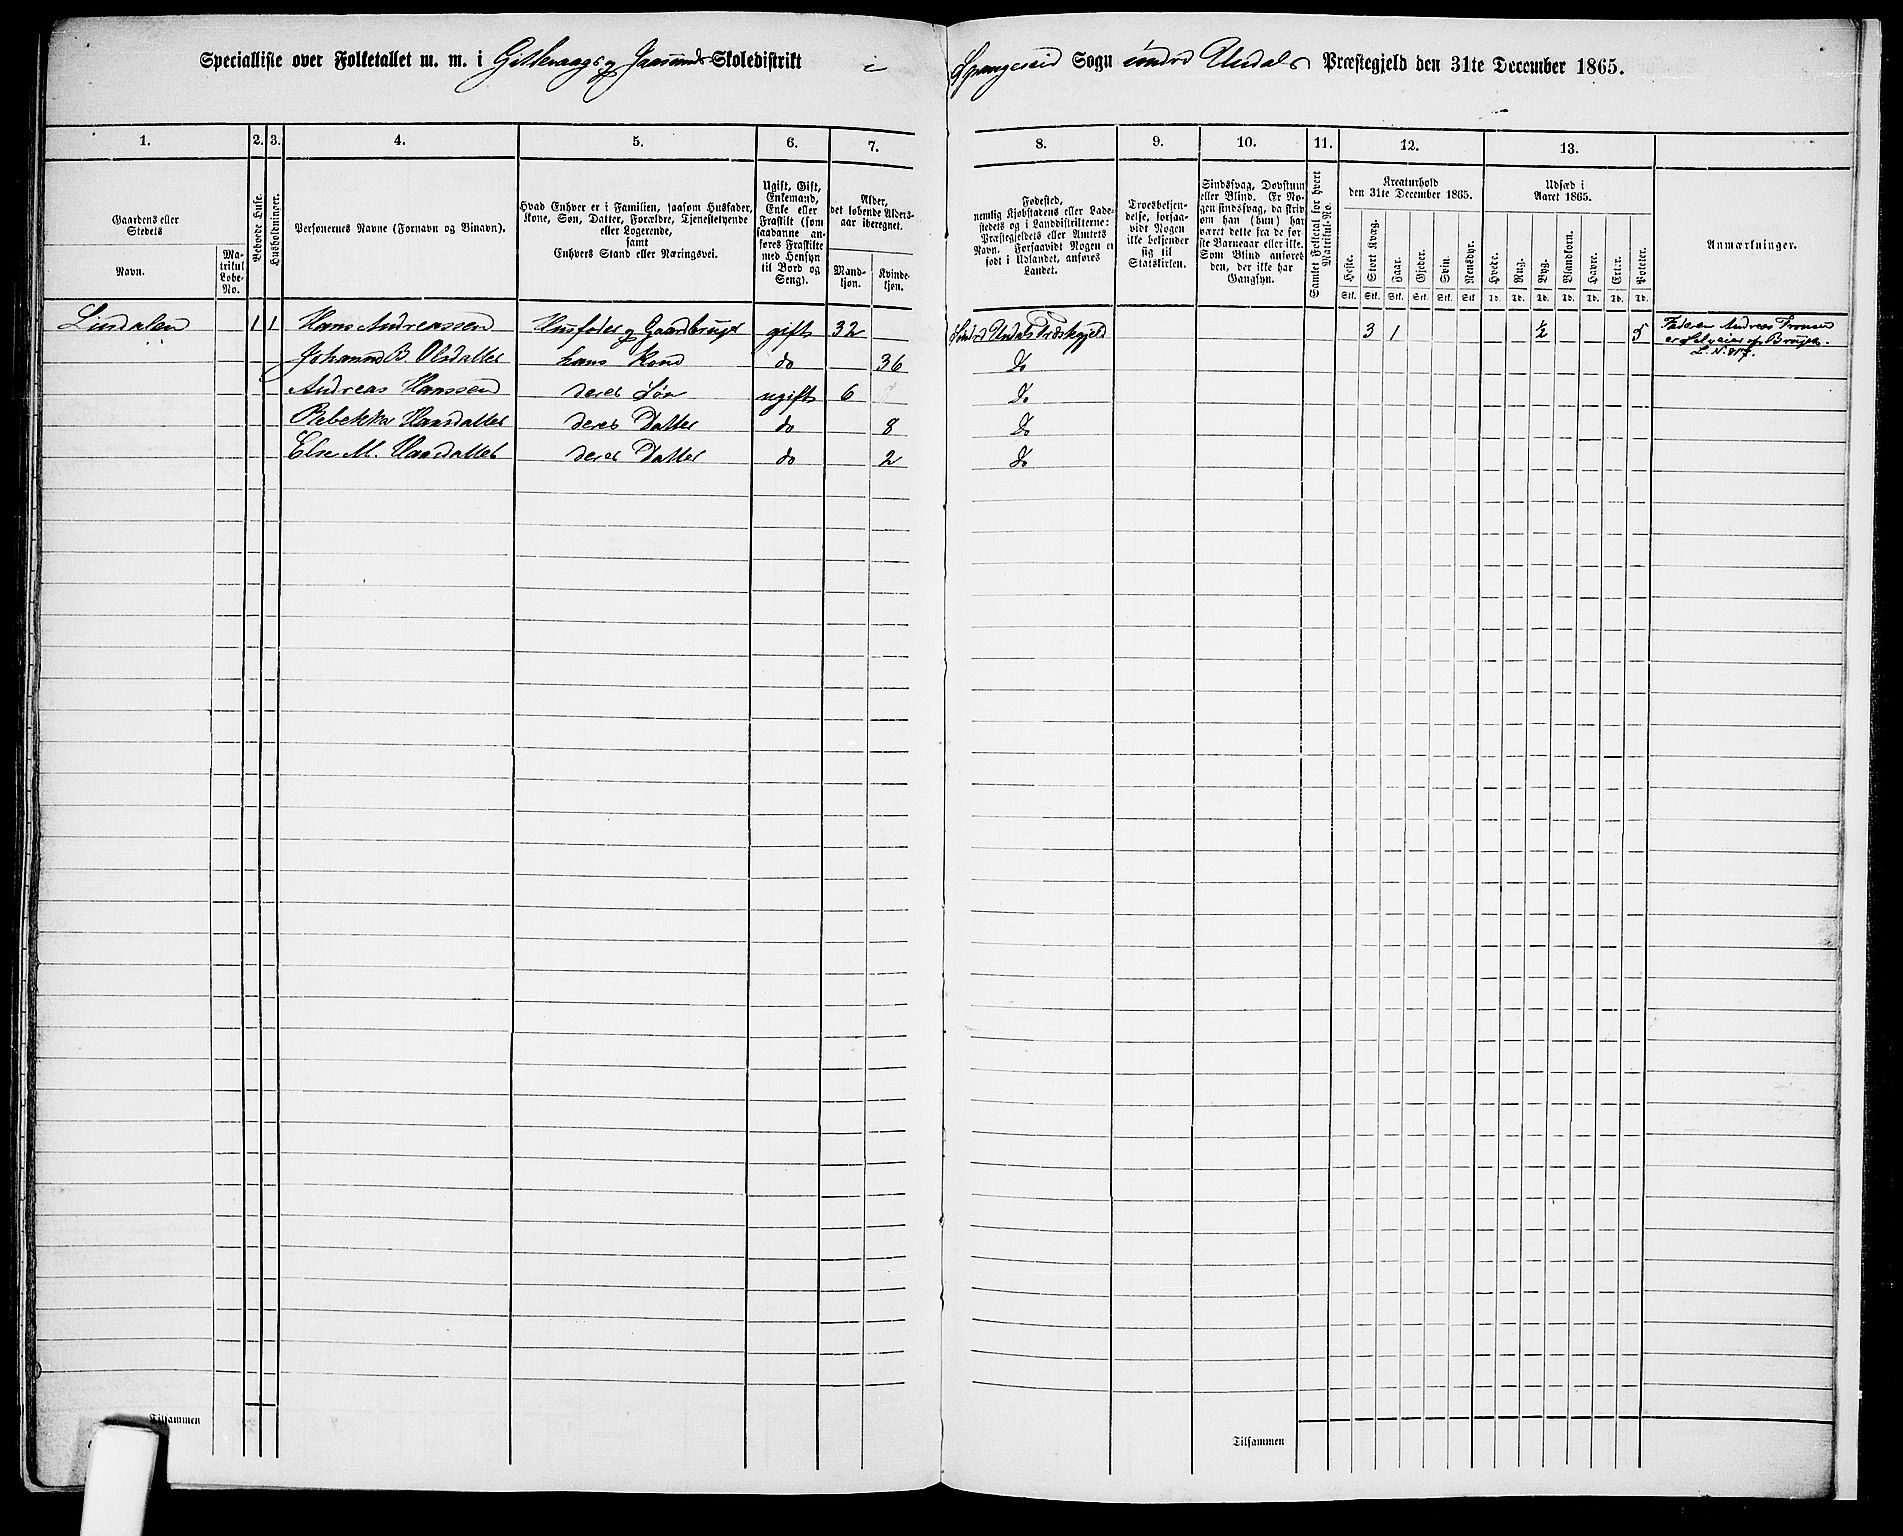 Specialliste over Folketallet m. m. i Gitlevaags og Jaasunds Skoledistrikt i Spangereid Sogn søndre Undals Præstegjeld den 31te December 1865.
1. 2. 3. 4. 5. 6. 7. 8. 9. 10. 11. 12. 13.
Gaardens eller Stedets
Navn.
Matrikul Løbe-No.
Bebœede Huse.
Husholdninger.
Personernes Navne (Fornavn og Binavn).
Hvad Enhver er i Familien, saasom Husfader,
Kone, Søn, Datter, Forældre, Tjenestetyende
eller Logerende,
samt
Enhvers Stand eller Næringsvei.
Ugift, Gift,
Enkemand,
Enke eller
Fraskilt (som
saadanne anføres
Fraskilte
med Hensyn
til Bord og
Seng).
Alder,
det løbende Aldersaar
iberegnet.
Mandkjøn.
Kvindekjøn.
Fødested,
nemlig Kjøbstadens eller Ladestedets
og i Landdistrikterne:
Præstegjeldets eller Amtets
Navn. Forsaavidt Nogen er
født i Udlandet, anføres
Landet.
Troesbekjendelse,
forsaavidt
Nogen
ikke bekjender
sig til
Statskirken.
Sindssvag, Døvstum
eller Blind. Er Nogen
sindssvag, da skriv
om han (hun) har
været dette fra de første
Barneaar eller ikke.
Som Blind anføres
den, der ikke har
Gangsyn.
Samlet Folketal for hvert
Matrikul-No.
Kreaturhold
den 31te December 1865.
Heste. Stort Kvæg. Faar. Gjeder. Svin. Rensdyr.
Stk. Stk. Stk. Stk. Stk. Stk
Udsæd i
Aaret 1865.
Hvede. Rug. Byg. Blandkorn. Havre. Erter. Poteter.
Td. Td. Td. Td. Td. Td. Td.
Anmærkninger.
Lindalen 1 1 Hans Andreassen Husfader og Gaardbruger gift 32 Søndre Undals Præstegjeld 3 1 ½ 5 Faderen Andreas Tronsen
er Selveier af Bruget.
Johanne B Olsdatter hans Kone do 36 Do L. N.
Andreas Hanssen deres Søn ugift 6 Do
Rebekka Hansdatter deres Datter do 8 Do
Else M. Hansdatter deres Datter do 2 do
Tilsammen
Tilsammen